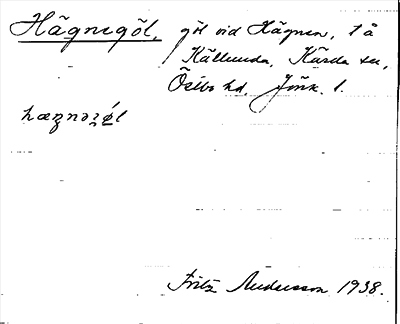 Hägnegöl, göl vid Hägnen, 1 å
Källunda, Kärda sn,
Östbo hd. Jönk. l.
hægnəgǿ̨l
Fritz Andersson 1938.